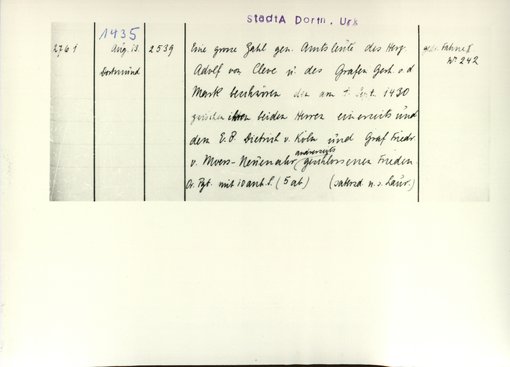 StadtA Dortm. Urk
1435
2761 Aug. 13. 2539 Eine grosse Zahl gen. Amtsleute des Herz. gedr. Fahne I
Dortmund Adolf von Cleve u. des Grafen Gerh. v. d. Nr 242
Mark den am 1. Sept. 1430
zwischen beiden Herren einerseits und
dem E.B. Dietrich v. Köln und Graf Friedr.
v. Moers-Neuenahr andrerseits geschlossenen Frieden
Or. Pgt. mit 10 anh. S. (5 ab) (saterd. n. s. Laur.)